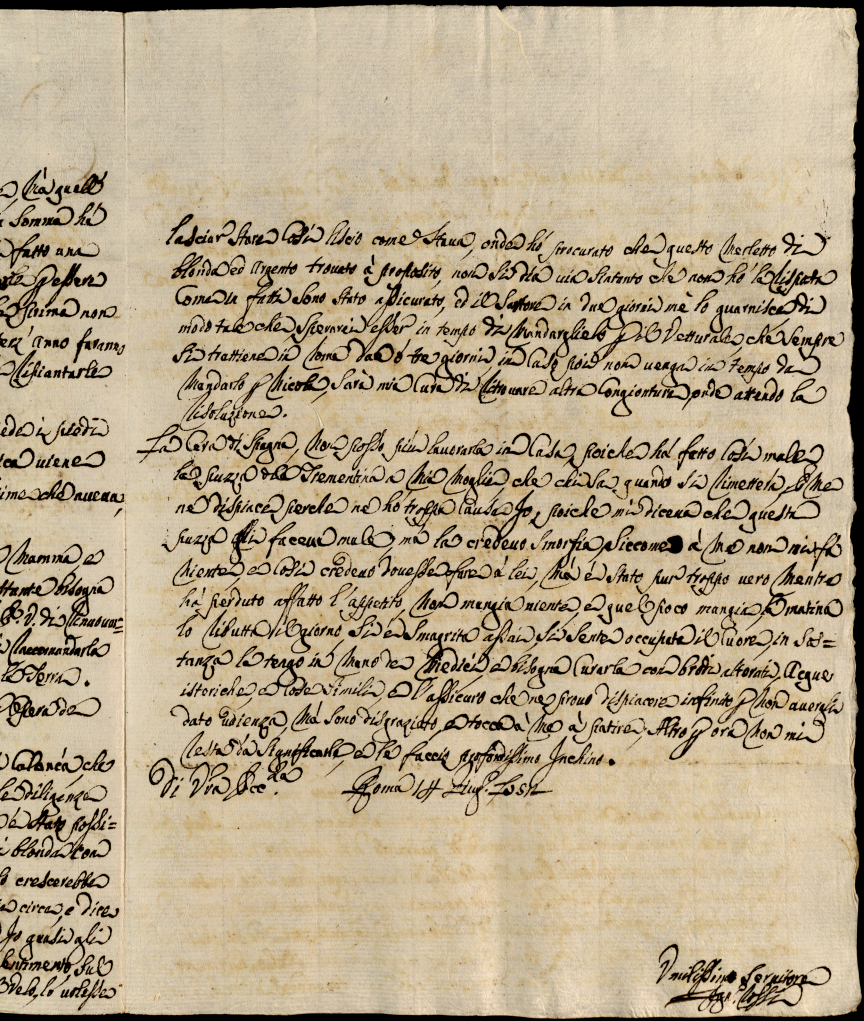 Mà quell
Somma hà
fatto una
essere
prima non
anno faranno
Ripiantarle
piedi
viene
che aveva,
Mamma, e
bisogna
V. di
raccomandarla
la Serra.
che
le diligenze
è stato possi=
blonda con
crescerebbe
circa, e dice
Io quasi gli
sentimento sul
lo volesse
lasciar stare così liscio come stava, onde hò procurato che questo Merletto di
blonda ed argento trovato à proposito, non si dia via sintanto che non hò la risposta
Come in fatti sono stato assicurato, ed il Sartore in due giorni me lo guarnisce di
modo tale che sperarei esser in tempo di Mandarglielo p il Vetturale che sempre
si trattiene in Roma da 2 ò tre giorni in caso poi non venga in tempo da
Mandarlo p Nicola, sarà mia cura di ritrovare altra Congiontura, onde attendo la
Risoluzione.
La Cera di Spagna, Non posso più lavorarla in Casa, poiche hà fatto così male
la puzza della Trementina a Mia Moglie che chi sa quando si rimetterà, e Me
ne dispiace perche ne hò troppa Causa Io, poiche mi diceva che questa
puzza gli faceva male, mà la credevo smorfia, siccome à Me non mi fà
Niente, e così credevo dovesse fare à lei, Mà è stato pur troppo vero Mentre
hà perduto affatto l'appetito, Non mangia niente, e quel poco mangia la matina
lo ributta il giorno, si è smagrita assai, si sente occupata il Cuore, in sos=
tanza la tengo in Mano de Medici, e bisogna Curarla con brodi alterati, Acque
isteriche, e cose simili, e l'assicuro che ne provo dispiacere infinito p Non averli
dato udienza, Mà sono disgraziato, e tocca à Me à patire, Altro p ora Non mi
resta da Significarle, e le faccio profondissimo Inchino.
Di Vra Ecc.za Roma 14 Lug.
Umilissimo Servitore